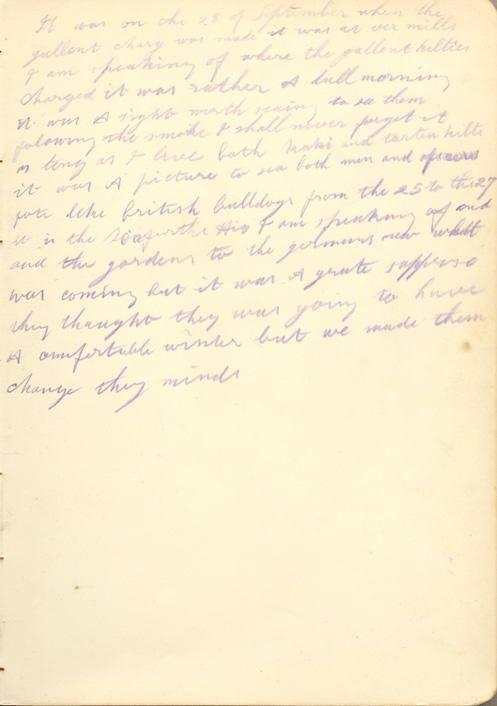 It was on the 25 of September when the
gallent charg was made it was at ver mills
I am speaking of where the gallent kilties
charged it was rather A dull morning
it was A sight worth seaing to se them
folowing the smoke I shall never forget it
as long as I live both kaki and tarten kilts
it was A picture to sea both men and
fote like british bulldogs from the 25 to the 27
it is the I am speaking of and
and the gordens to the germans new whatt
was coming but it was A grate supprse
they thought they was going to have
A comfortable winter but we made them
change they minds